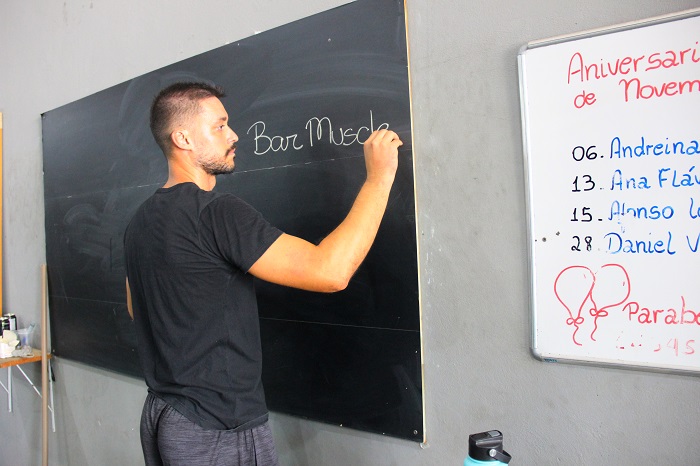 Bar Muscle
Aniversari
de Novem
06. Andreina
13. Ana Fláv
15. Afonso
28. Daniel V
Parabé